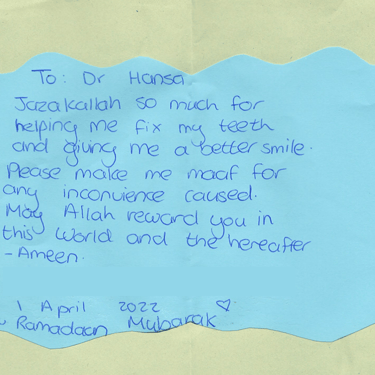 To: Dr Hansa
Jazakallah so much for
helping me fix my teeth
and giving me a better smile.
Please make me maaf for
any inconvience caused.
May Allah reward you in
this world and the hereafter
- Ameen.
1 April 2022 ♡
Ramadaan Mubarak